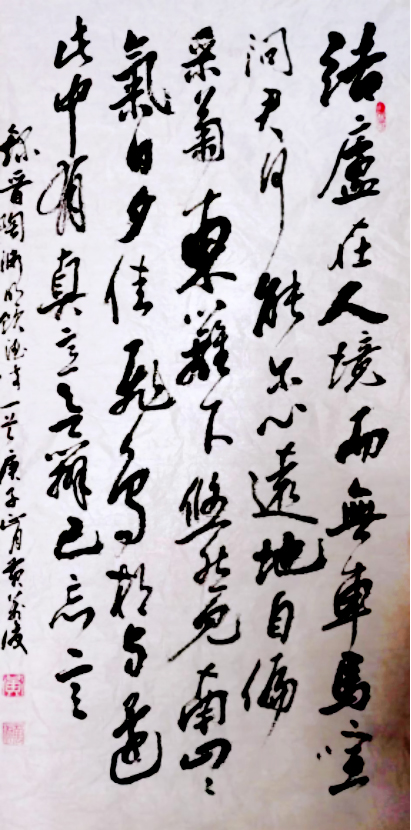 結廬在人境而無車馬喧
問君何能尔心遠地自偏
采菊東籬下悠然見南山〻
氣日夕佳飛鳥相與還
此中有真意欲辯已忘言
錄晉陶淵明飲酒詩一首庚子正月黃